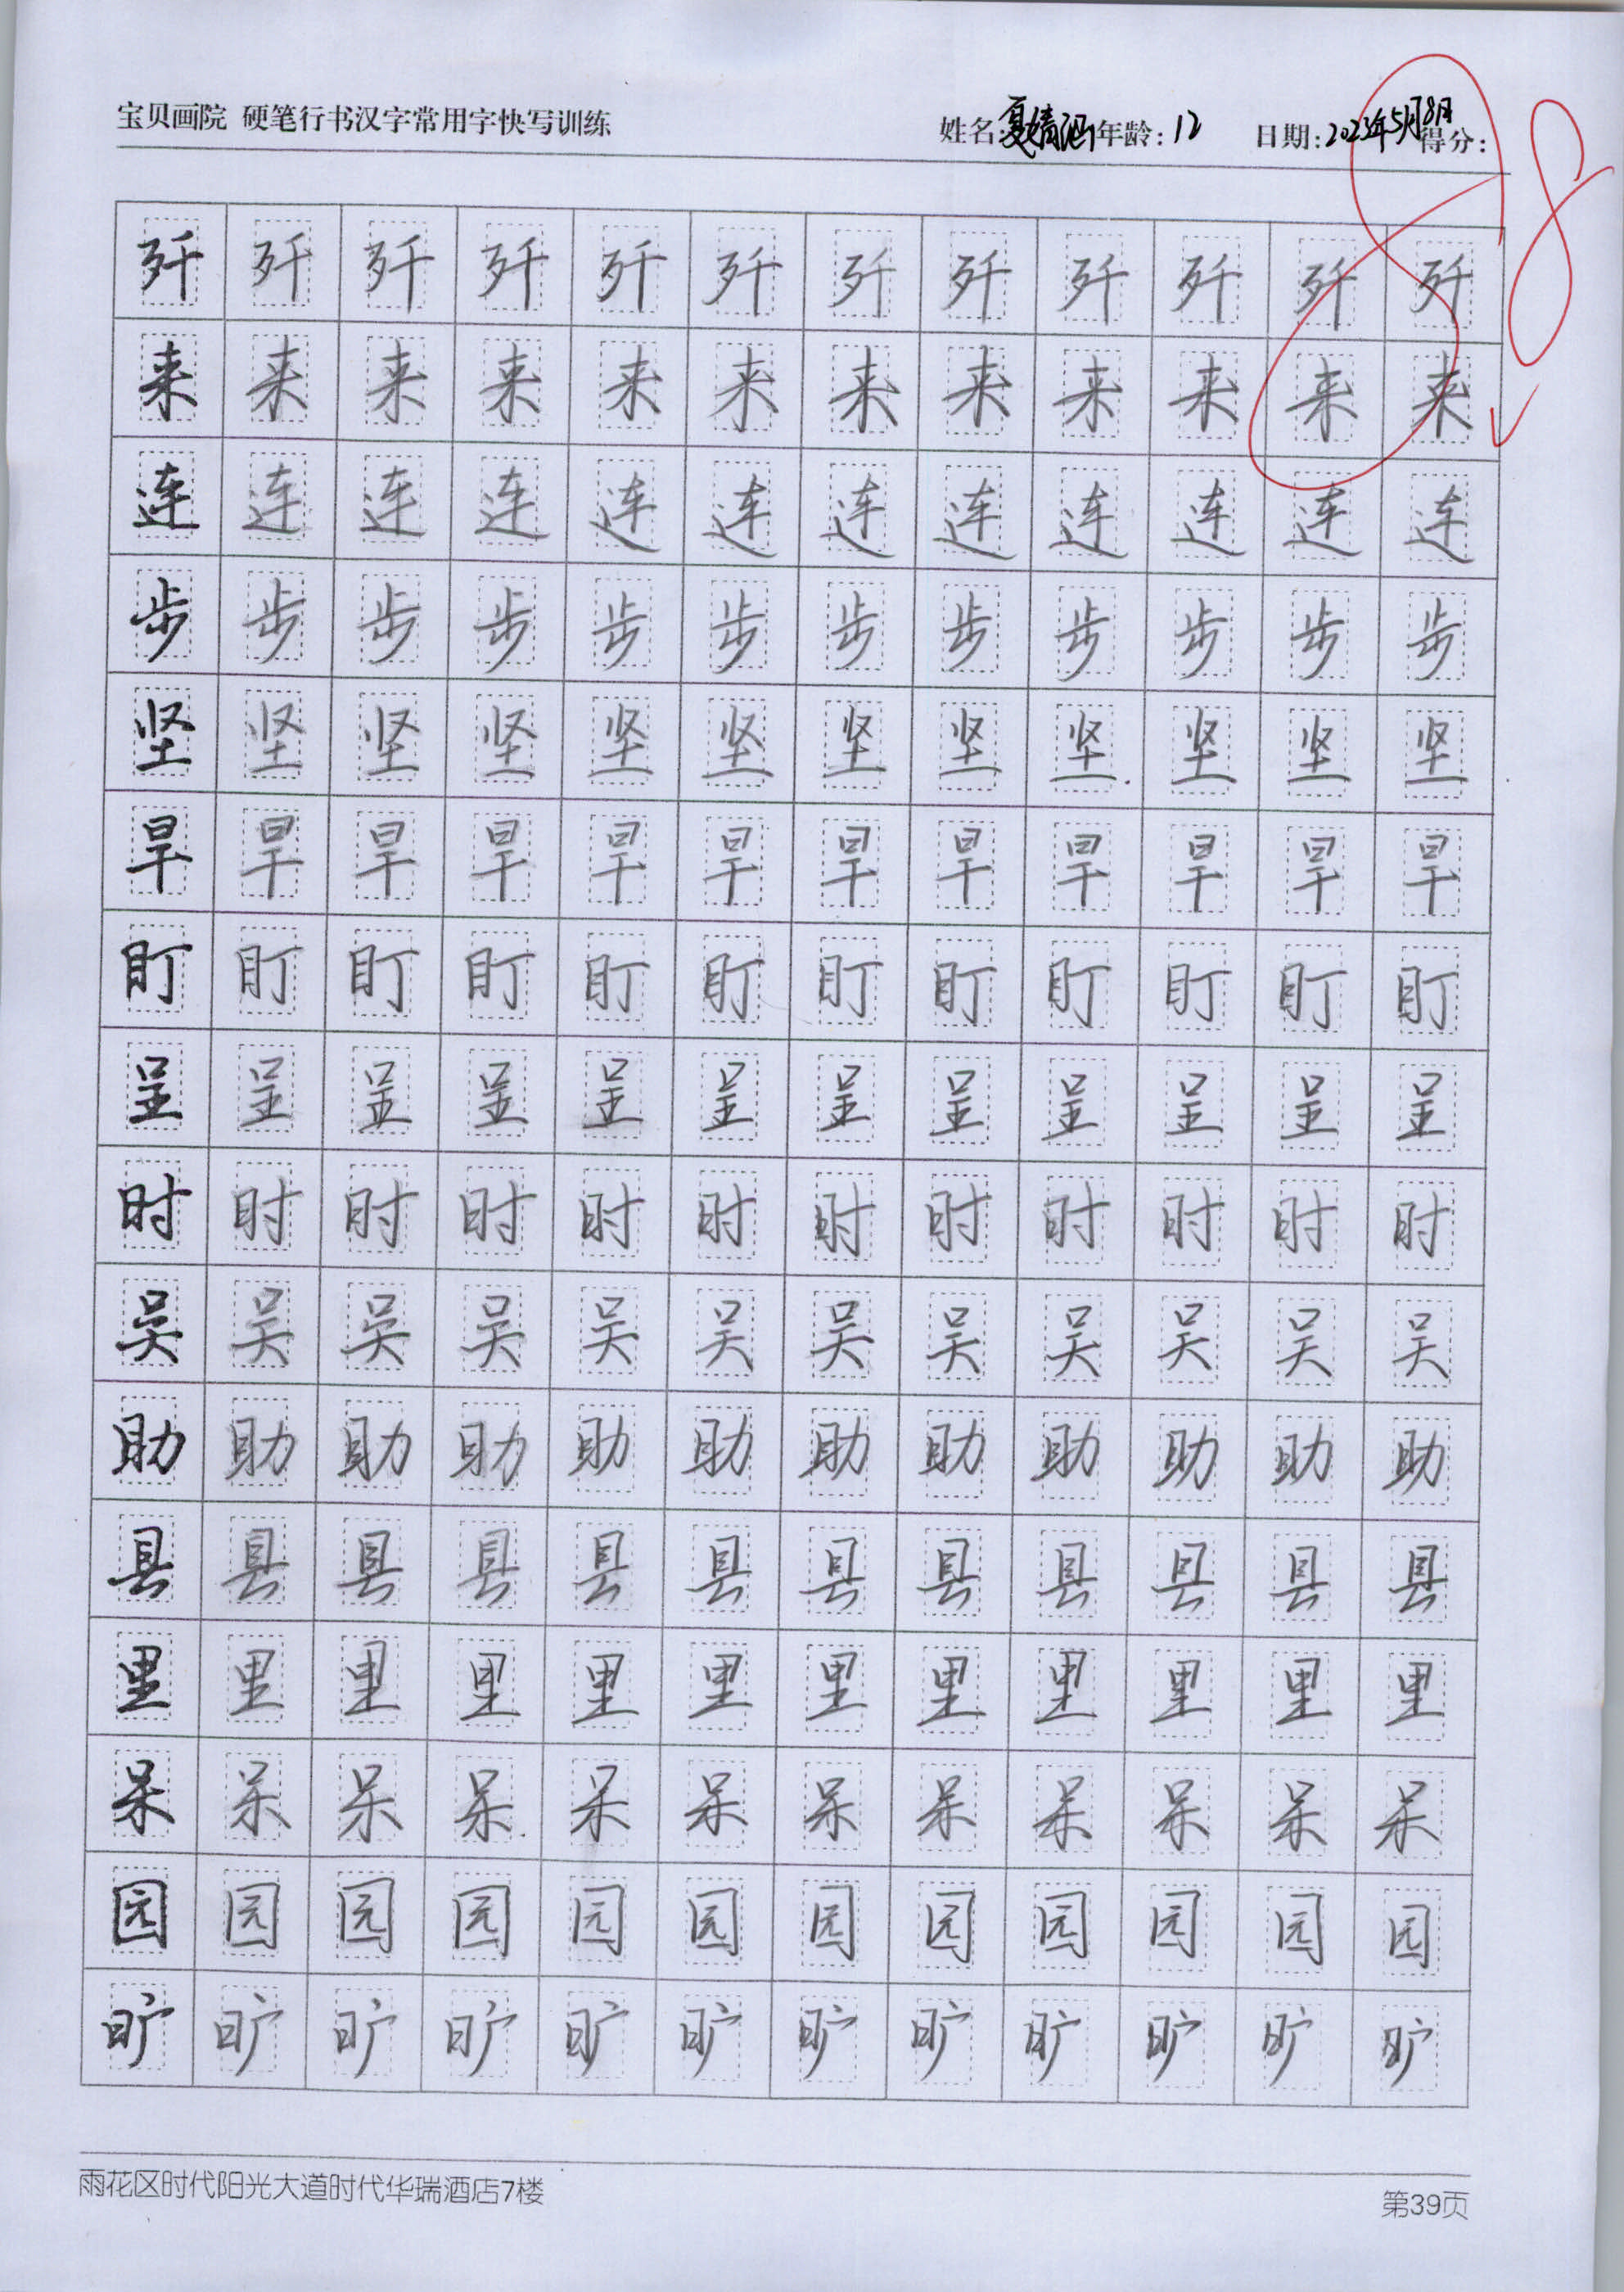 宝贝画院 硬笔行书汉字常用字快写训练 姓名:夏婧涵 年龄:12 日期:2023年5月8日 得分:98
歼歼歼歼歼歼歼歼歼歼歼歼
来来来来来来来来来来来来
连连连连连连连连连连连连
步步步步步步步步步步步步
坚坚坚坚坚坚坚坚坚坚坚坚
旱旱旱旱旱旱旱旱旱旱旱旱
盯盯盯盯盯盯盯盯盯盯盯盯
呈呈呈呈呈呈呈呈呈呈呈呈
时时时时时时时时时时时时
吴吴吴吴吴吴吴吴吴吴吴吴
助助助助助助助助助助助助
县县县县县县县县县县县县
里里里里里里里里里里里里
呆呆呆呆呆呆呆呆呆呆呆呆
园园园园园园园园园园园园
旷旷旷旷旷旷旷旷旷旷旷旷
雨花区时代阳光大道时代华瑞酒店7楼 第39页